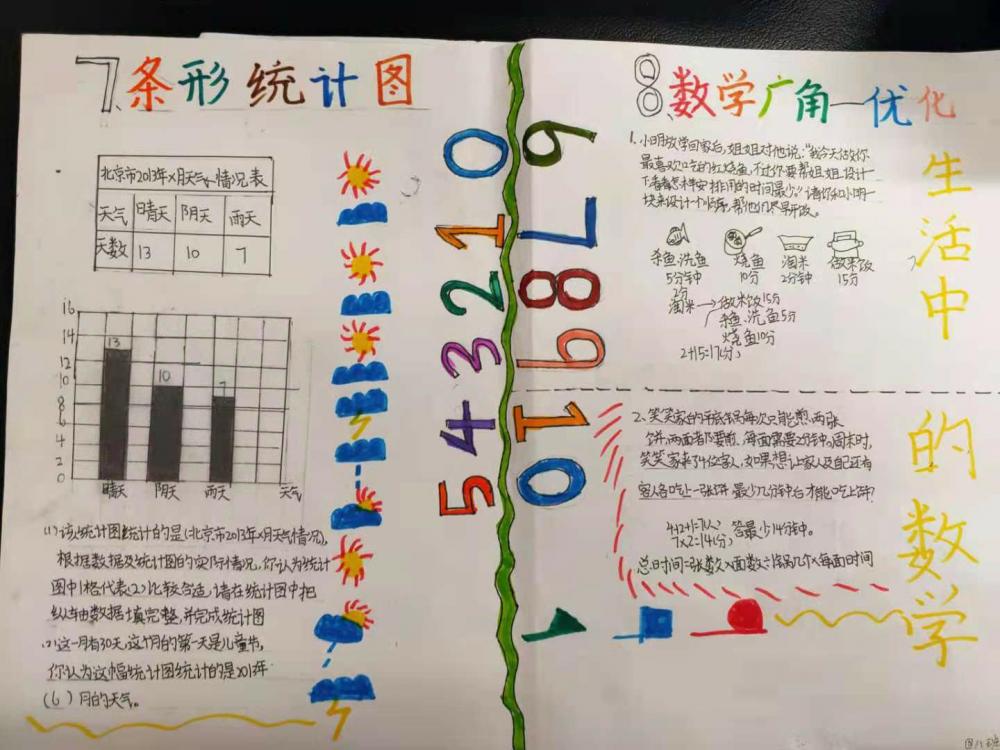 7、条形统计图
北京市2013年×月天气情况表
天气 晴天 阴天 雨天
天数 13 10 7
16
14
12
10
8
6
4
2
0
13
10
7
晴天 阴天 雨天 天气
(1)该统计图统计的是(北京市2013年×月天气情况),
根据数据及统计图的实际情况,你认为统计
图中1格代表(2)比较合适,请在统计图中把
纵轴数据填完整,并完成统计图
(2)这一月有30天,这个月的第一天是儿童节,
你认为这幅统计图统计的是2013年
(6)月的天气。
0
1
2
3
4
5
6
7
8
9
10
8、数学广角—优化
1、小明放学回家后,姐姐对他说:“我今天做你
最喜欢吃的红烧鱼,不过你要帮姐姐设计一
下看看怎样安排用的时间最少。”请你和小明一
块来设计个顺序,帮他们尽早开饭。
杀鱼、洗鱼 烧鱼 淘米 做米饭
5分钟 10分 2分钟 15分
2分
淘米→做米饭15分
杀鱼、洗鱼5分
烧鱼10分
2+15=17(分)
2、笑笑家的平底锅每次只能煎两张
饼,两面都要煎,每面需要2分钟,周末时,
笑笑家来了4位客人,如果想让家人及自己还有
客人各吃上一张饼 最少几分钟后才能吃上饼?
4+2+1=7(人)
7×2=14(分) 答最少14分钟。
总时间=张数×面数÷每锅几个×每面时间
生活中
的数学